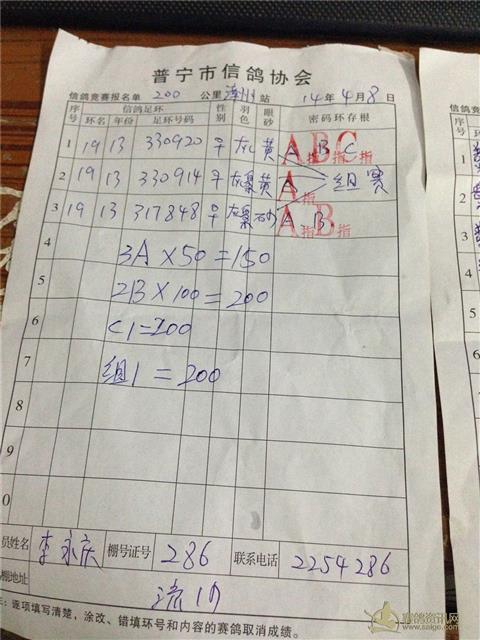 普宁市信鸽协会
信鸽竞赛报名单 200 公里漳州站 14年4月8日
序号 信鸽足环 性别 羽色 眼砂 密码环存根
环名 年份 足环号码
1 19 13 330920 平 灰 黄 A指 B指 C指
2 19 13 330914 平 灰 黄 A指 组赛
3 19 13 317848 平 灰 砂 A指 B指
4 3A×50=150
5 2B×100=200
6 C1=200
7 组1=200
8
9
0
员姓名 李永庆 棚号证号 286 联系电话 2254286
棚地址 流沙
主:逐项填写清楚,涂改、错填环号和内容的赛鸽取消成绩。
赛鸽资讯网
www.saige.com